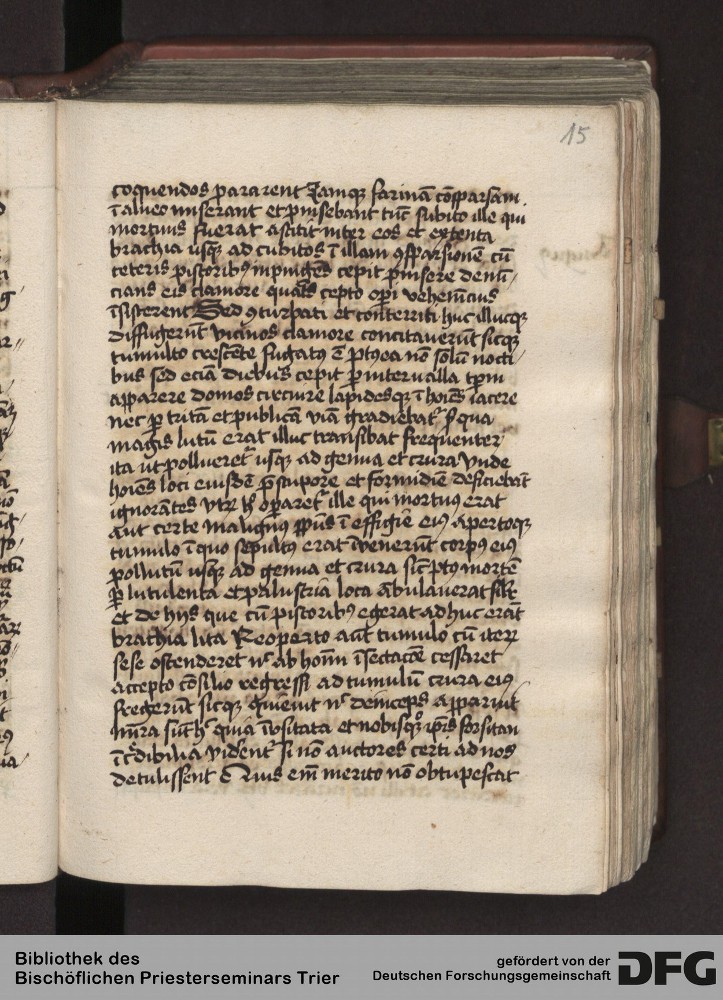 15
coquendos pararent Jamque farinā cōsparsam
ī alueo miserant et pinsebant tūc subito ille qui
mortuus fuerat astitit inter eos et extenta
brachia usqꝫ ad cubitos ī illam ꝯsparsionē cū
ceteris pistoribꝫ inpingēs cepit pinsere denū-
cians eis clamore quatꝰ cepto opi vehemēcius
īsisterent Sed ꝯturpati et conterriti huc illucqꝫ
diffugerūt vicinos clamore concitauerūt sicqꝫ
tumulto crescēte fugatꝰ ē ptꝰea nō solū nocti-
bus sed eciā diebus cepit ꝑ interualla tpm
apparere domos circuire lapidesqꝫ ī hoīes iacere
nec ꝑ tritā et publicā viā gradiebatʳ sꝫ qua
magis lutū erat illuc transibat frequenter
ita ut pollueretʳ usqꝫ ad genua et crura Vnde
hoīes loci eiusdē p̄ stupore et formidīe deficiebāt
ignorātes vtꝝ h̄ oꝑaretʳ ille qui mortuꝰ erat
aut certe malignus sp̄us ī effigie eiꝰ apertoqꝫ
tumulo ī quo sepultꝰ erat īvenerūt corpꝰ eiꝰ
pollutū usqꝫ ad genua et crura sic̄ ptꝰ mortē
ꝑ lutulenta et palustria loca ābulauerat silr̄
et de hijs que cū pistoribꝫ egerat ad huc erāt
brachia lita Reoperto aūt tumulo cū iteꝝ
sese ostenderet nͨ ab hoīm īsectacōe cessaret
accepto cōsilio regressi ad tumulū crura eiꝰ
fregerūt sicqꝫ quieuit nͨ deinceps apparuit
mira sūt h̄ quia īvsitata et nobisqꝫ ip̄is forsitan
īcͬdibilia videntʳ si nō auctores certi ad nos
detulissent Quis em̄ merito nō obtupescat
Bibliothek des
Bischöflichen Priesterseminars Trier
gefördert von der
Deutschen Forschungsgemeinschaft
DFG